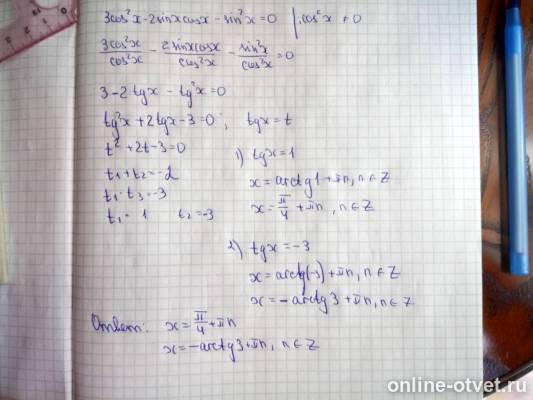 3cos²x-2sinxcosx-sin²x=0 |:cos²x≠0
3cos²x/cos²x - 2sinxcosx/cos²x - sin²x/cos²x=0
3-2tgx-tg²x=0
tg²x+2tgx-3=0; tgx=t
t²+2t-3=0
t₁+t₂=-2
t₁·t₂=-3
t₁=1 t₂=-3
1) tgx=1
x=arctg1+πn, n∈Z
x=π/4+πn, n∈Z
2) tgx=-3
x=arctg(-3)+πn, n∈Z
x=-arctg3+πn, n∈Z
Ответ: x=π/4+πn
x=-arctg3+πn, n∈Z
online-otvet.ru